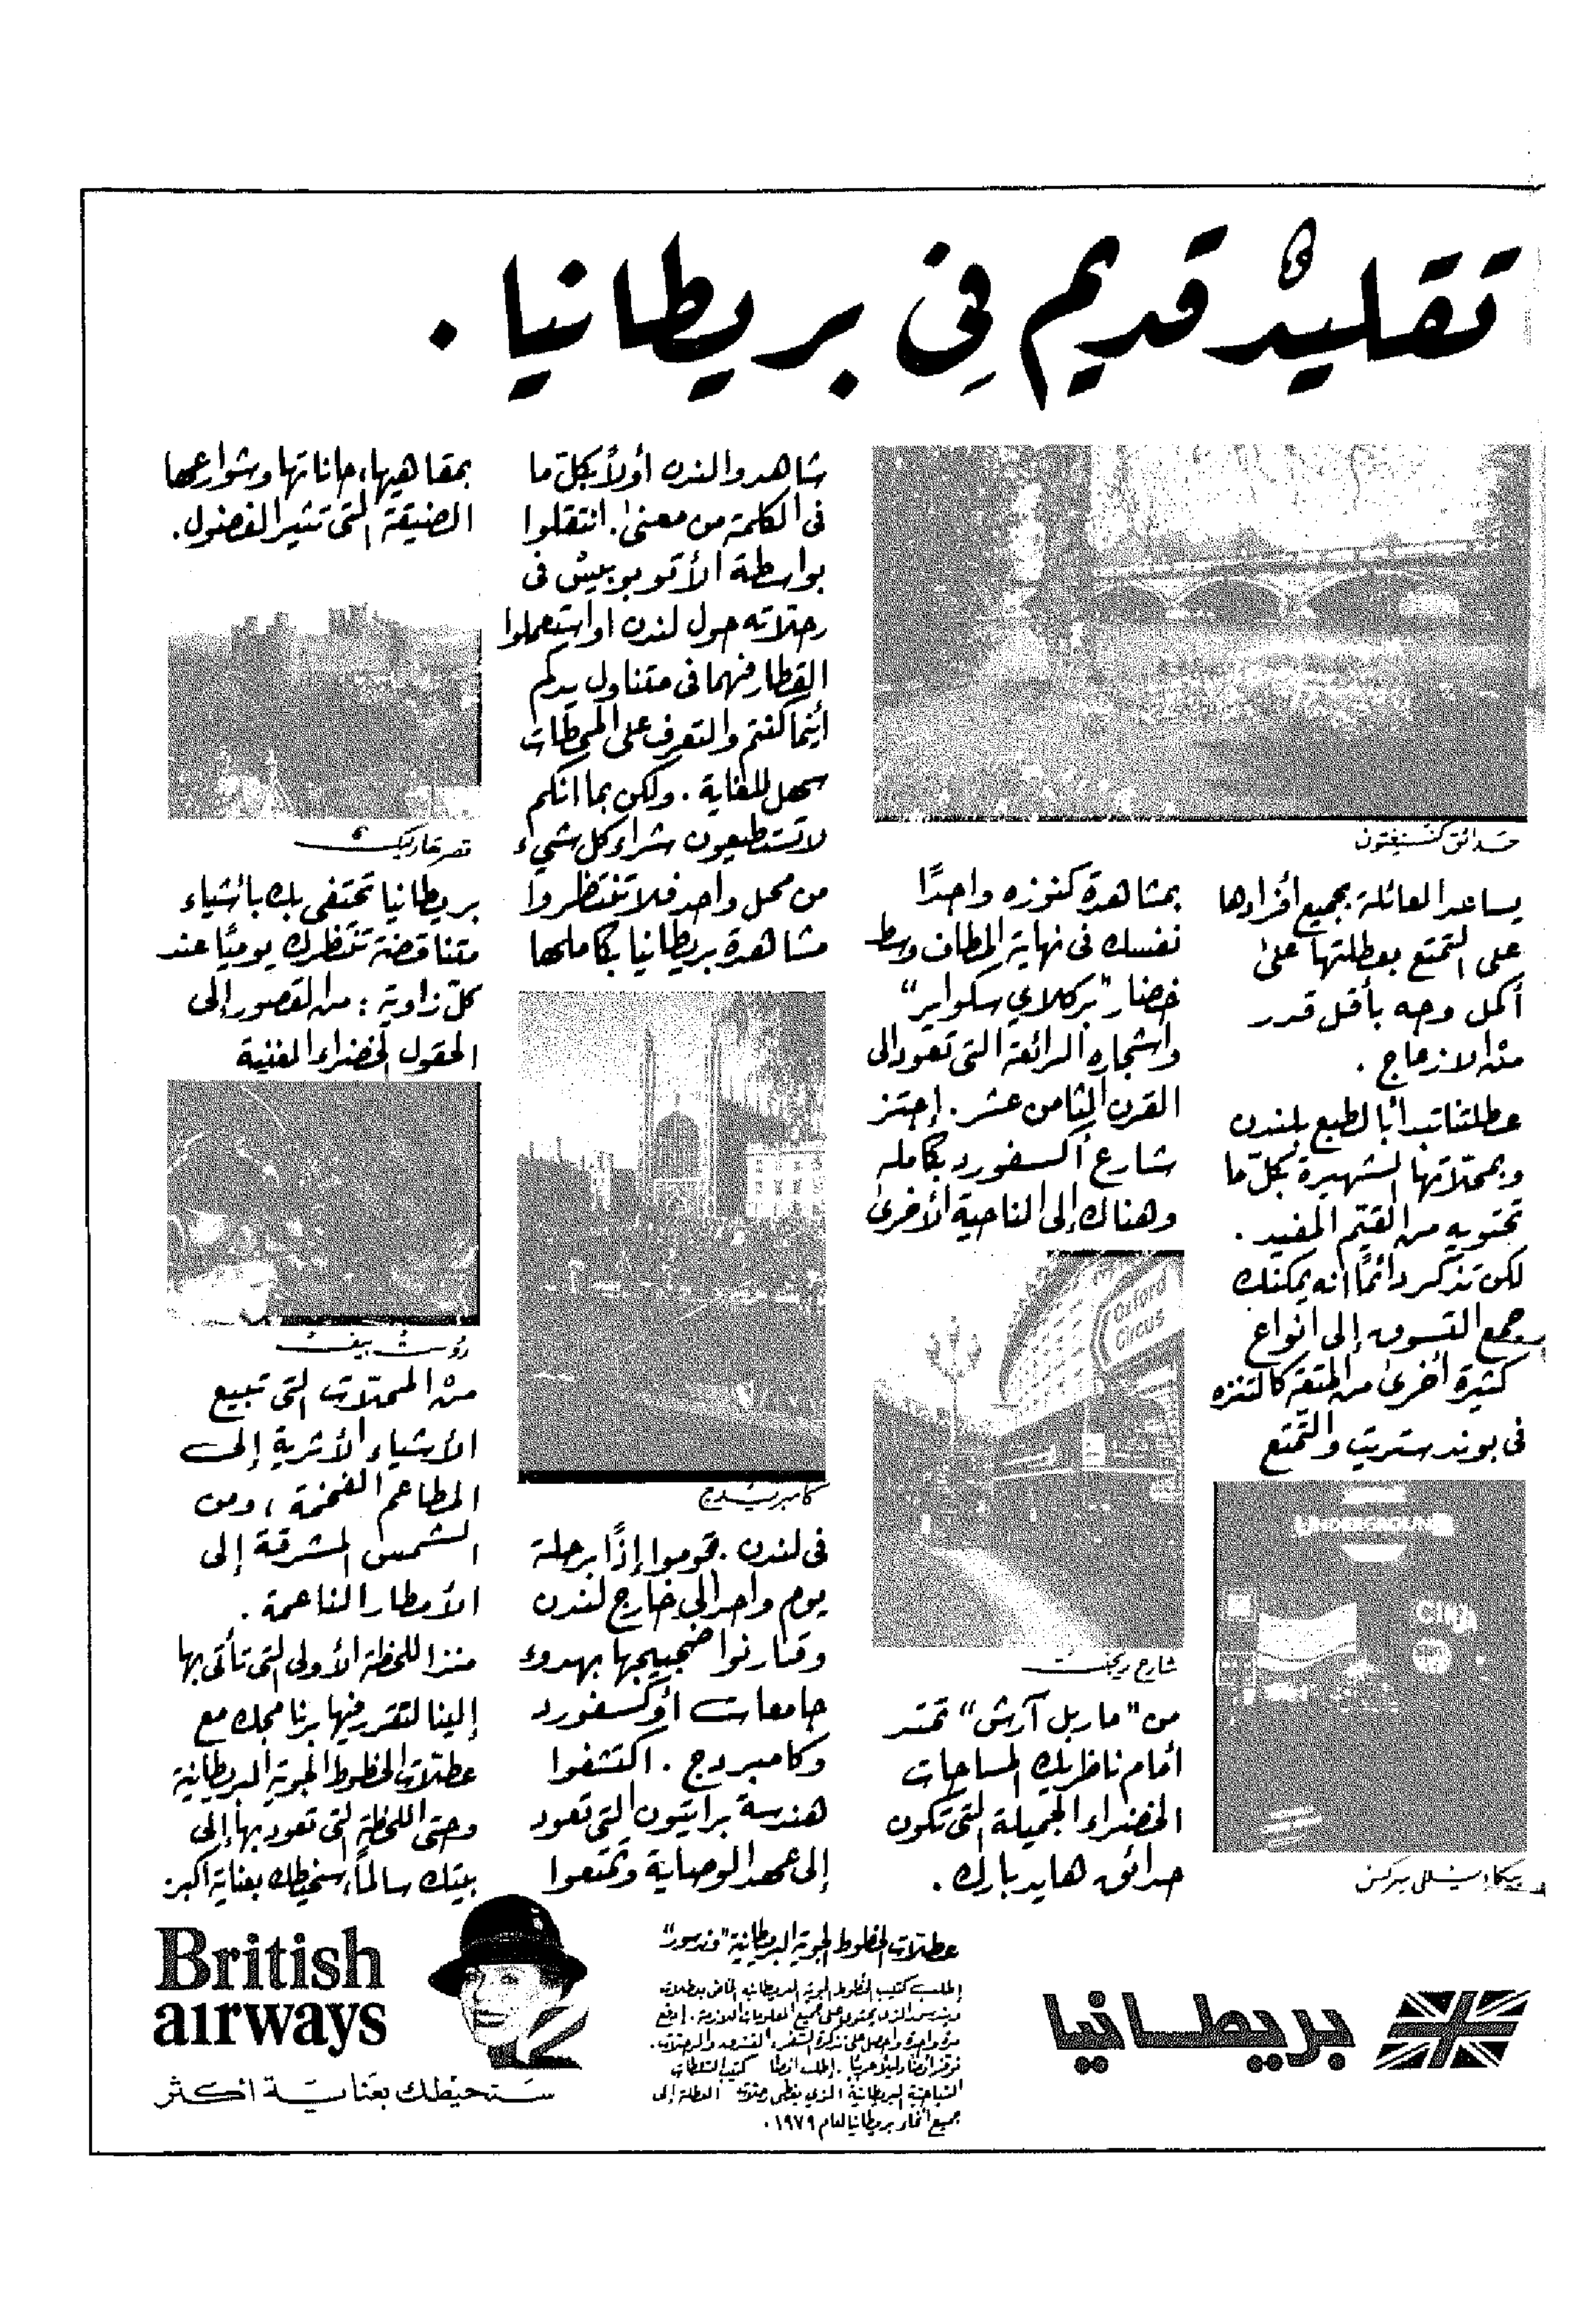 تقليدٌ قديم في بريطانيا .
حدائق كنسنغتون
يساعد العائلة بجميع أفرادها
على التمتع بعطلتها على
أكمل وجه بأقل قدر
من الازعاج .
عطلتنا تبدأ بالطبع بلندن
وبمحلّاتها الشهيرة بكلّ ما
تحتويه من القيّم المفيد .
لكن تذكر دائمًا انه يمكنك
جمع التسوق إلى أنواع
كثيرة أخرى من المتعة كالتنزه
في بوند ستريت والتمتع
UNDERGROUND
بيكاديللي سركس
بمشاهدة كنوزه واجدًا
نفسك في نهاية المطاف وسط
خضار "بركلاي سكواير"
وأشجاره الرائعة التي تعود الى
القرن الثامن عشر . إجتز
شارع أكسفورد بكامله
وهناك إلى الناحية الأخرى
Oxford
Circus
شارع ريجنت
من "ماربل آرش" تمتد
أمام ناظريك المساحات
الخضراء الجميلة التي تكون
حدائق هايد بارك .
شاهدوا لندن أولاً بكلّ ما
في الكلمة من معنى . انتقلوا
بواسطة الأتوبوبيس في
رحلاته حول لندن او استعملوا
القطار فهما في متناول يدكم
أينما كنتم والتعرف على المحطات
سهل للغاية . ولكن بما انكم
لا تستطيعون شراء كل شيء
من محل واحد فلا تنتظروا
مشاهدة بريطانيا بكاملها
كامبريدج
في لندن . قوموا إذًا برحلة
يوم واحد الى خارج لندن
وقارنوا ضجيجها بهدوء
جامعات أوكسفورد
وكامبردج . اكتشفوا
هندسة برايتون التي تعود
إلى عهد الوصاية وتمتعوا
بمقاهيها، حاناتها وشوارعها
الضيقة التي تثير الفضول .
قصر هارليك
بريطانيا تحتفي بك بأشياء
متناقضة تنتظرك يوميًا عند
كلّ زاوية : من القصور إلى
الحقول الخضراء الغنية
روست بيف
من المحلات التي تبيع
الأشياء الأثرية إلى
المطاعم الفخمة ، ومن
الشمس المشرقة إلى
الأمطار الناعمة .
منذ اللحظة الأولى التي تأتي بها
إلينا لتقرر فيها برنامجك مع
عطلات الخطوط الجوية البريطانية
وحتى اللحظة التي تعود بها إلى
بيتك سالمًا، سنحيطك بعناية أكبر
بريطانيا
عطلات الخطوط الجوية البريطانية "وندسور"
إطلب كتيب الخطوط الجوية البريطانية الخاص بعطلات
وندسور الذي يحتوي على جميع المعلومات اللازمة . إدفع
مرة واحدة واحصل على تذكرة السفر، الفندق والرحلات .
نوفر أيضًا دليلاً عربيًا . إطلب أيضًا كتيب السلطات
السياحية البريطانية الذي يغطي رحلات العطلة إلى
جميع أنحاء بريطانيا لعام ١٩٧٩ .
British
airways
سنحيطك بعناية اكثر